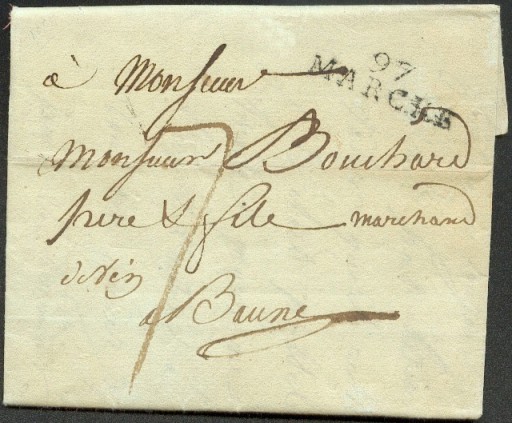 97
MARCHE
à Monsieur
Monsieur Bouchard
pere & fils marchand
de vin
a Baune
7